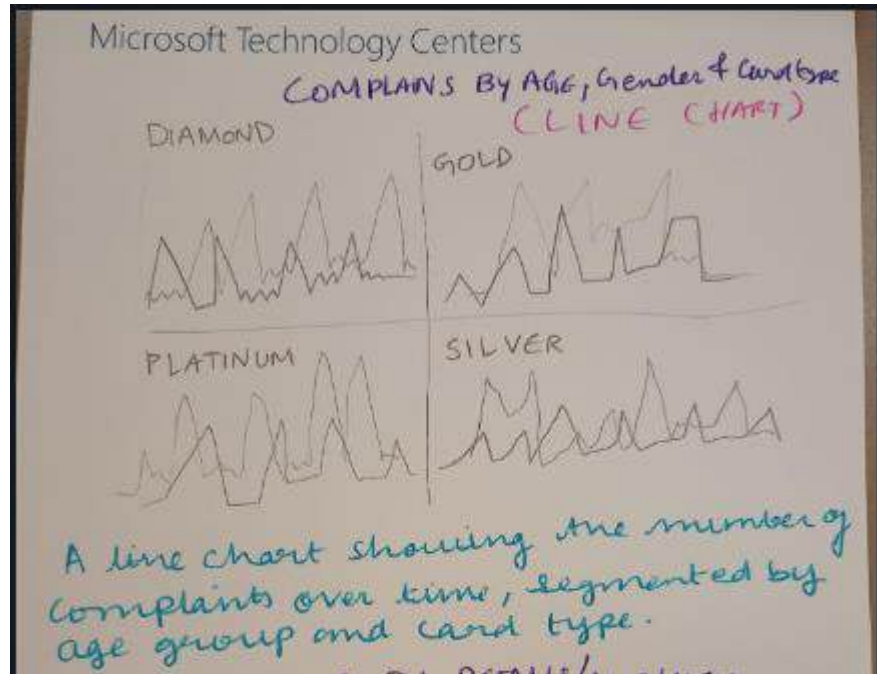 Microsoft Technology Centers
COMPLAINS BY AGE, Gender & Card type
(LINE CHART)
DIAMOND
GOLD
PLATINUM
SILVER
A line chart showing the number of
complaints over time, segmented by
age group and card type.